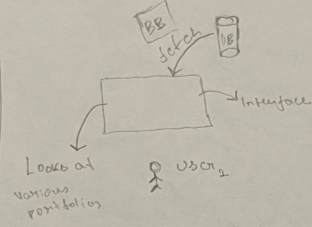 BB
fetch
DB
Interface
Looks at
various
portfolios
User 2